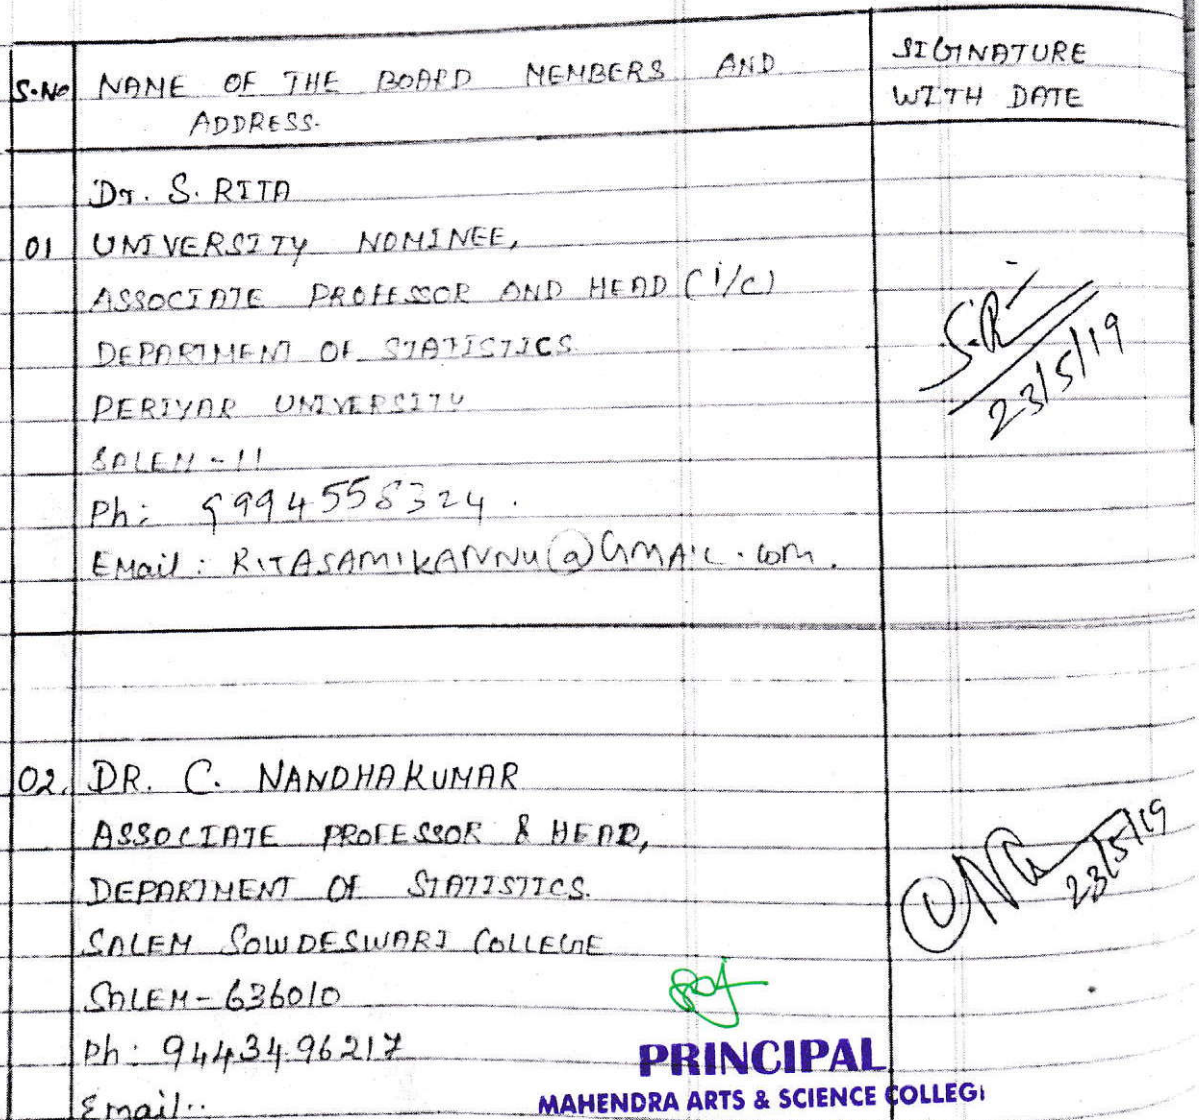 S.No NAME OF THE BOARD MEMBERS AND ADDRESS.
SIGNATURE WITH DATE
Dr. S. RITA
01 UNIVERSITY NOMINEE,
ASSOCIATE PROFESSOR AND HEAD (i/c)
DEPARTMENT OF STATISTICS
PERIYAR UNIVERSITY
SALEM - 11
Ph: 9994558324.
EMail: RITASAMIKANNU@GMAIL.com.
S.R
23/5/19
02. DR. C. NANDHAKUMAR
ASSOCIATE PROFESSOR & HEAD,
DEPARTMENT OF STATISTICS.
SALEM SOWDESWARI COLLEGE
SALEM - 636010
Ph: 9443496217
Email:
23/5/19
PRINCIPAL
MAHENDRA ARTS & SCIENCE COLLEG